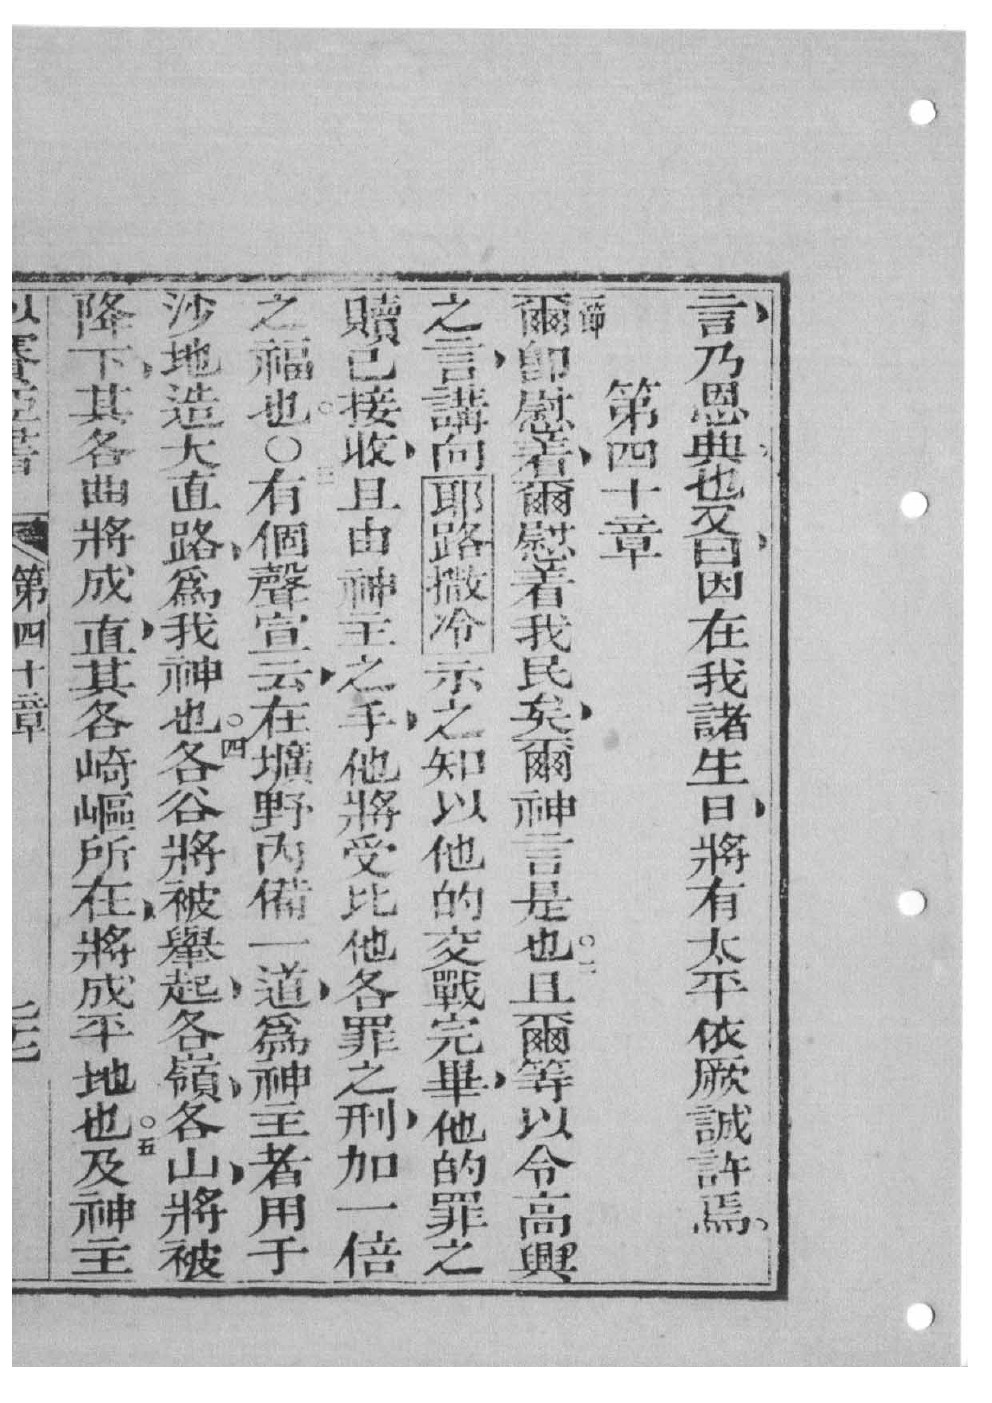 言乃恩典也又曰因在我諸生日將有太平依厥誠許焉。
第四十章
一節爾卽慰着爾慰着我民矣爾神言是也○二且爾等以令高興
之言講向耶路撒冷示之知以他的交戰完畢他的罪之
贖已接收且由神主之手他將受比他各罪之刑加一倍
之福也○三〇有個聲宣云在壙野內備一道爲神主者用于
沙地造大直路爲我神也○四各谷將被舉起各嶺各山將被
降下其各曲將成直其各崎嶇所在將成平地也○五及神主
以賽亞書 第四十章